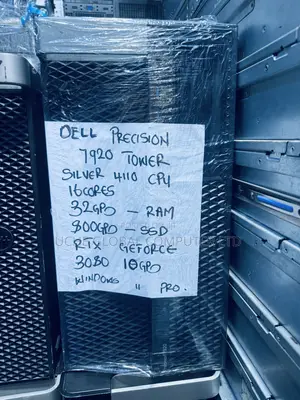 DELL PRECISION
7920 TOWER
SILVER 4110 CPU
16CORES
32GB - RAM
800GB - SSD
RTX GEFORCE
3080 10GB
WINDOWS 11 PRO.